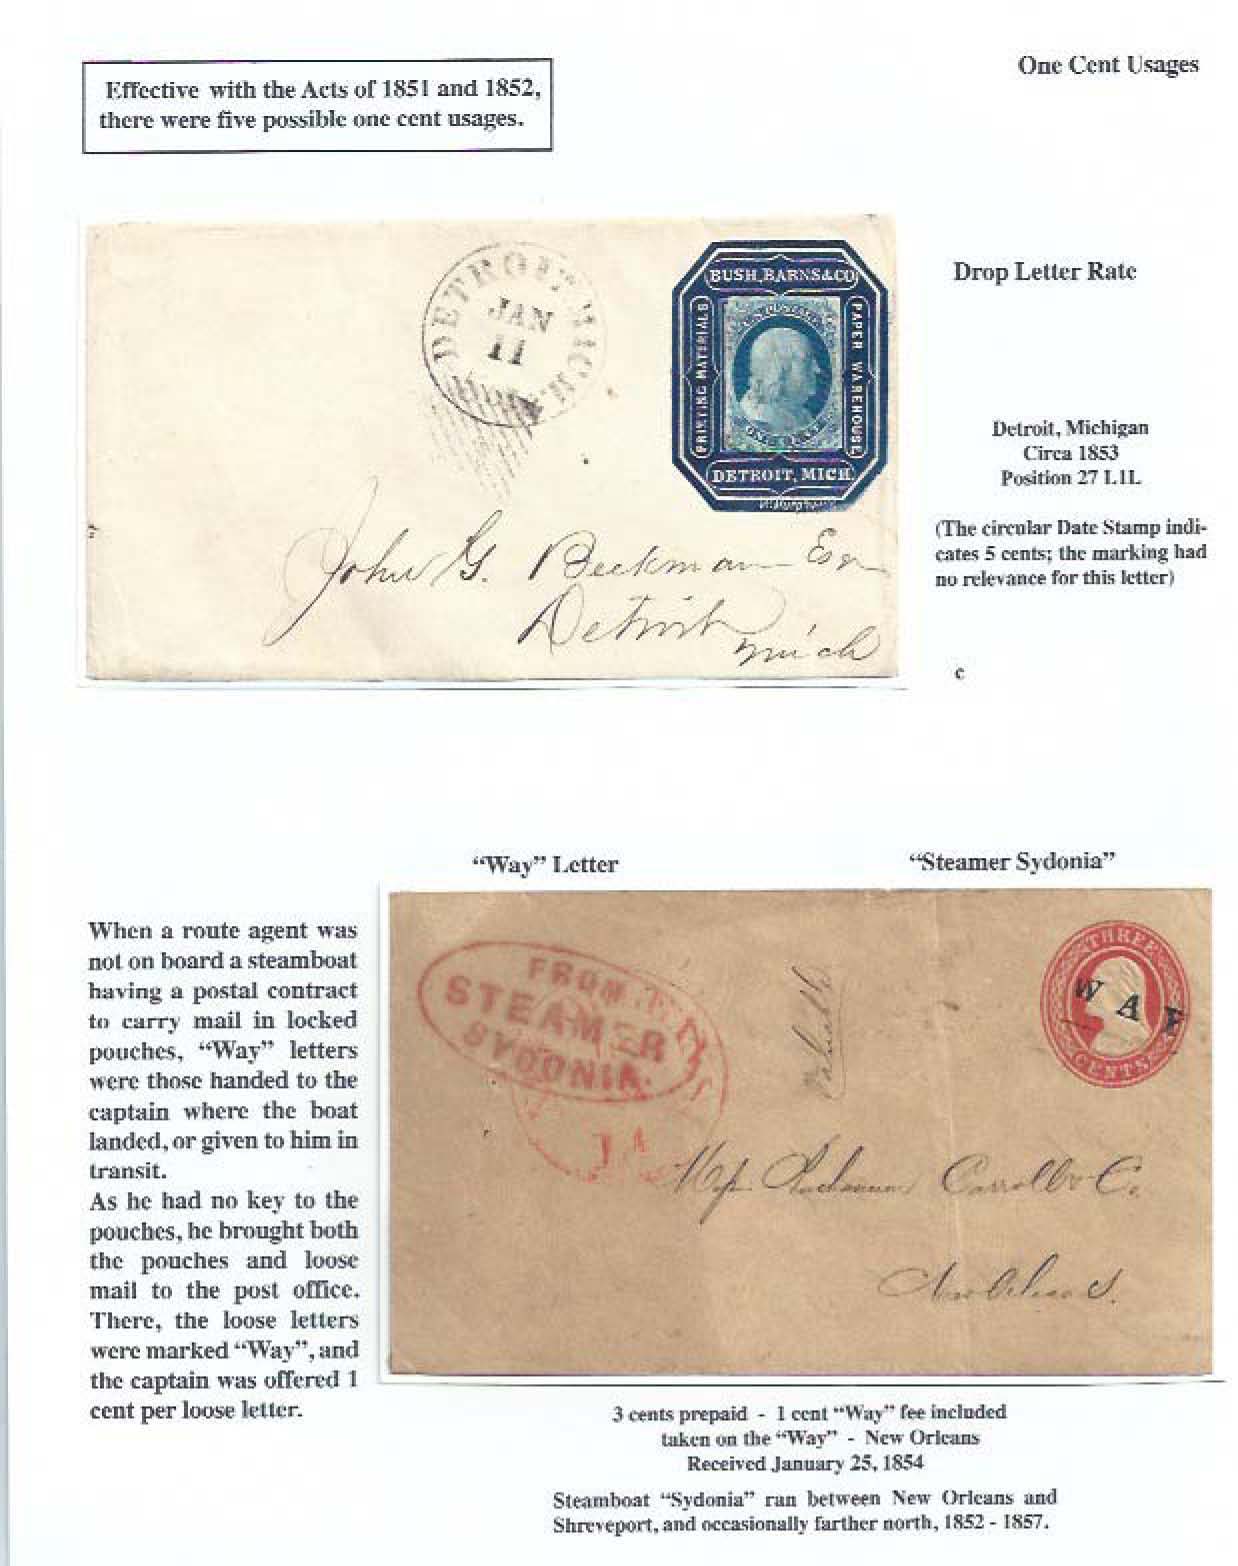 One Cent Usages
Effective with the Acts of 1851 and 1852,
there were five possible one cent usages.
DETROIT MICH.
JAN
11
BUSH, BARNS & CO
PRINTING MATERIALS
PAPER WAREHOUSE
ONE CENT
DETROIT, MICH.
John G. Beekman Esq
Detroit
Mich
Drop Letter Rate
Detroit, Michigan
Circa 1853
Position 27 L1L
(The circular Date Stamp indi-
cates 5 cents; the marking had
no relevance for this letter)
c
“Way” Letter
“Steamer Sydonia”
When a route agent was
not on board a steamboat
having a postal contract
to carry mail in locked
pouches, “Way” letters
were those handed to the
captain where the boat
landed, or given to him in
transit.
As he had no key to the
pouches, he brought both
the pouches and loose
mail to the post office.
There, the loose letters
were marked “Way”, and
the captain was offered 1
cent per loose letter.
FROM
STEAMER
SYDONIA.
THREE
WAY
CENTS
Carroll & Co.
New Orleans.
3 cents prepaid - 1 cent “Way” fee included
taken on the “Way” - New Orleans
Received January 25, 1854
Steamboat “Sydonia” ran between New Orleans and
Shreveport, and occasionally farther north, 1852 - 1857.